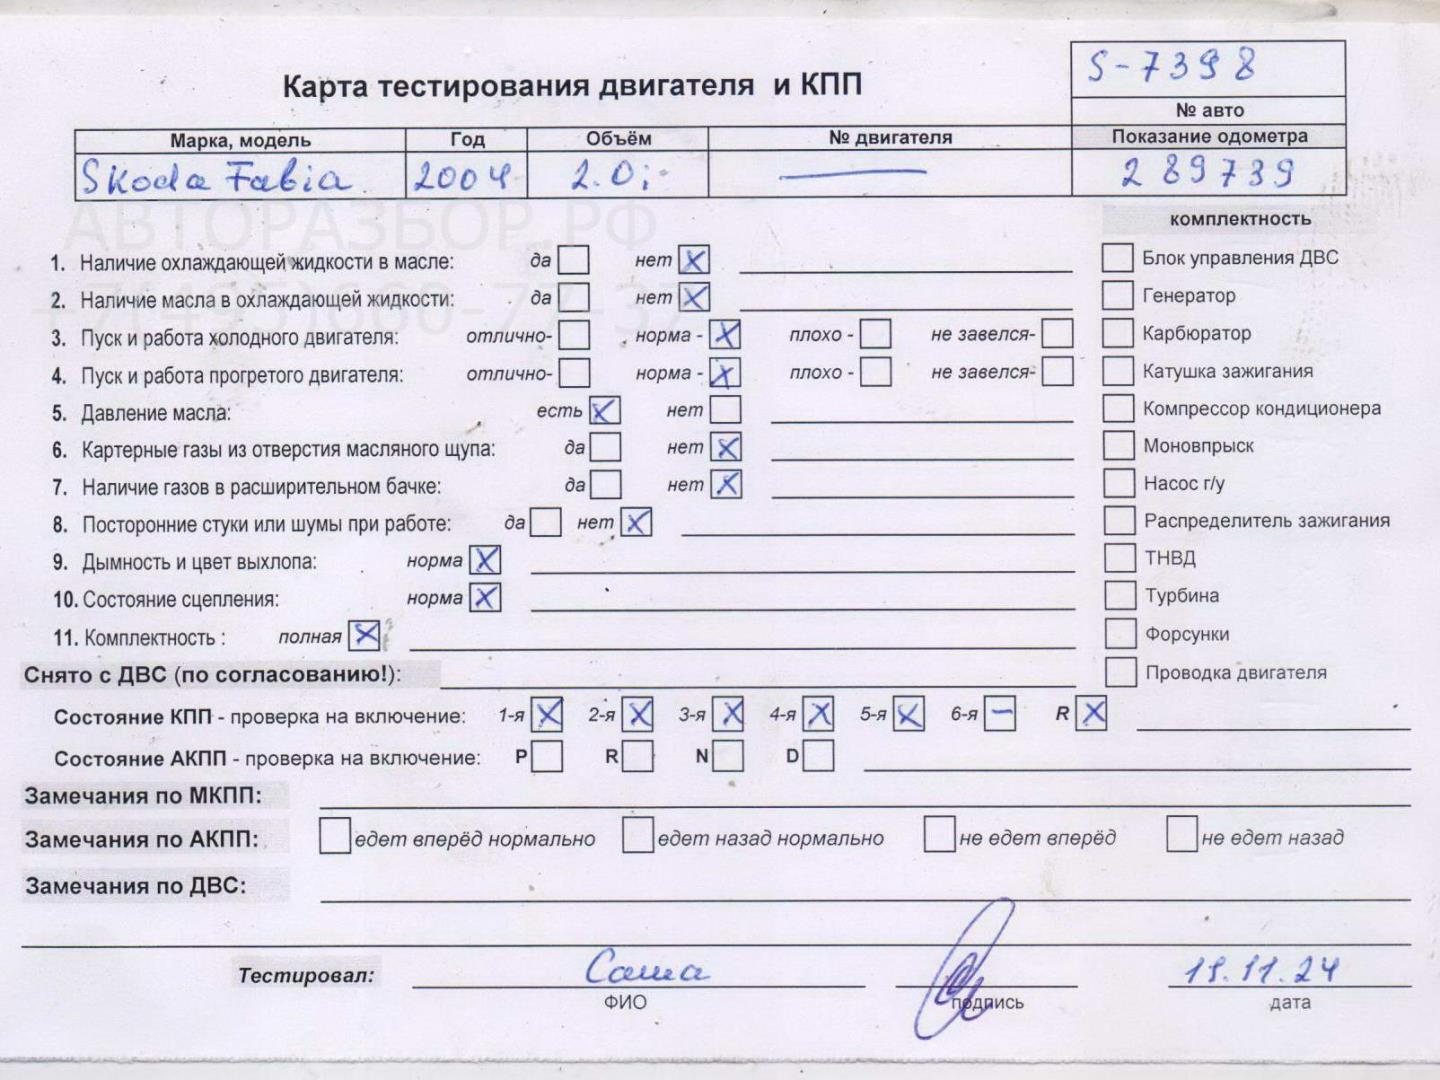 S-7398
Карта тестирования двигателя и КПП
№ авто
Марка, модель Год Объём № двигателя Показание одометра
Skoda Fabia 2004 2.0i — 289739
АВТОРАЗБОР.РФ
комплектность
1. Наличие охлаждающей жидкости в масле: да нет X
Блок управления ДВС
2. Наличие масла в охлаждающей жидкости: да нет X
Генератор
+7(495)660-77-37
3. Пуск и работа холодного двигателя: отлично- норма - X плохо - не завелся-
Карбюратор
4. Пуск и работа прогретого двигателя: отлично- норма - X плохо - не завелся-
Катушка зажигания
5. Давление масла: есть X нет
Компрессор кондиционера
6. Картерные газы из отверстия масляного щупа: да нет X
Моновпрыск
7. Наличие газов в расширительном бачке: да нет X
Насос г/у
8. Посторонние стуки или шумы при работе: да нет X
Распределитель зажигания
9. Дымность и цвет выхлопа: норма X
ТНВД
10. Состояние сцепления: норма X
Турбина
11. Комплектность : полная X
Форсунки
Снято с ДВС (по согласованию!):
Проводка двигателя
Состояние КПП - проверка на включение: 1-я X 2-я X 3-я X 4-я X 5-я X 6-я — R X
Состояние АКПП - проверка на включение: P R N D
Замечания по МКПП:
Замечания по АКПП: едет вперёд нормально едет назад нормально не едет вперёд не едет назад
Замечания по ДВС:
Тестировал: Саша 19.11.24
ФИО подпись дата